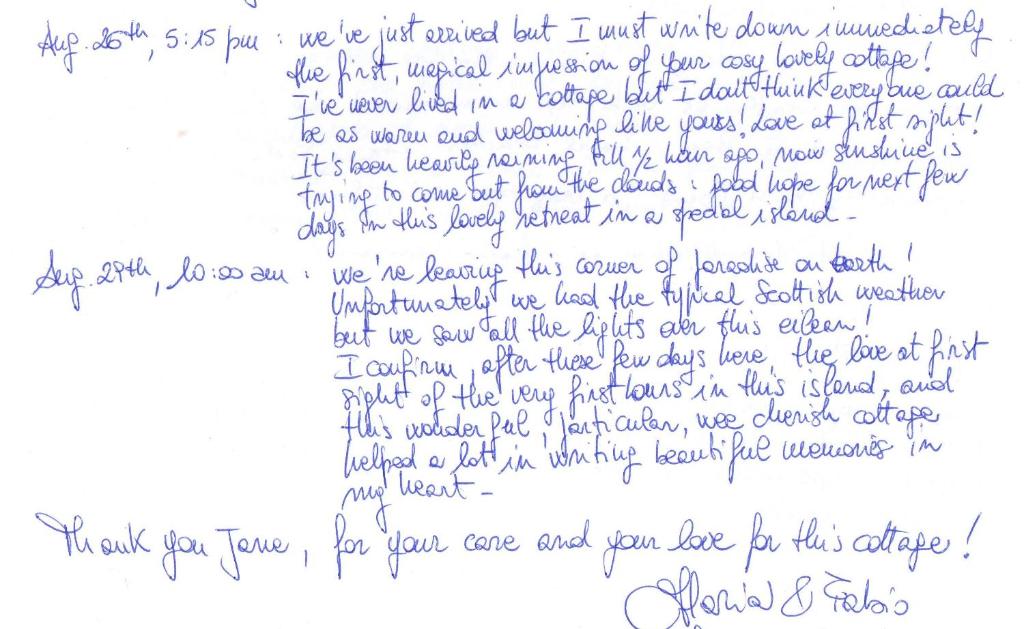 Aug. 26th, 5:15 pm : we've just arrived but I must write down immediately
the first, magical impression of your cosy lovely cottage!
I've never lived in a cottage but I don't think everyone could
be as warm and welcoming like yours! Love at first sight!
It's been heavily raining till 1/2 hour ago, now sunshine is
trying to come out from the clouds : good hope for next few
days in this lovely retreat in a special island -
Aug. 29th, 10:00 am : we're leaving this corner of paradise on earth!
Unfortunately we had the typical Scottish weather
but we saw all the lights over this eilean!
I confirm, after these few days here, the love at first
sight of the very first hours in this island, and
this wonderful, particular, wee cherish cottage
helped a lot in writing beautiful memories in
my heart -
Thank you Jane, for your care and your love for this cottage!
& Fabio